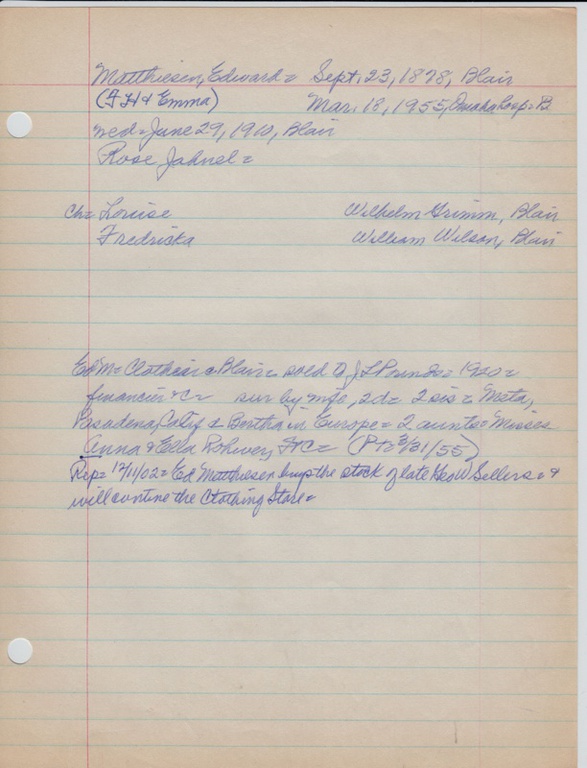 Matthiesen, Edward = Sept. 23, 1878, Blair
(F H & Emma) Mar. 18, 1955, Omaha hosp = B
wed = June 29, 1910, Blair
Rose Jahnel =
Ch = Louise Wilhelm Grimm, Blair
Fredricka William Wilson, Blair
Ed M = Clothier @ Blair = sold to J L Pounds = 1920 =
sur by wife, 2 d = 2 sis = Meta,
Pasadena, Calif & Bertha in Europe = 2 aunts = Misses
Anna & Ella Rohwer, Ft C = (P T 3/31/55)
Rep = 12/11/02 = Ed Matthiesen buys the stock of late Geo W Sellers = &
will contine the Clothing Store =